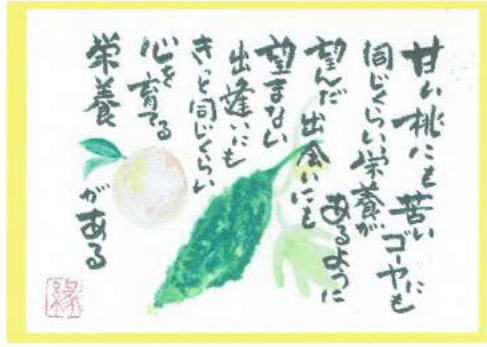 甘い桃にも苦いゴーヤにも
同じくらい栄養が
あるように
望んだ出会いにも
望まない
出逢いにも
きっと同じくらい
心を育てる
栄養
がある
縁